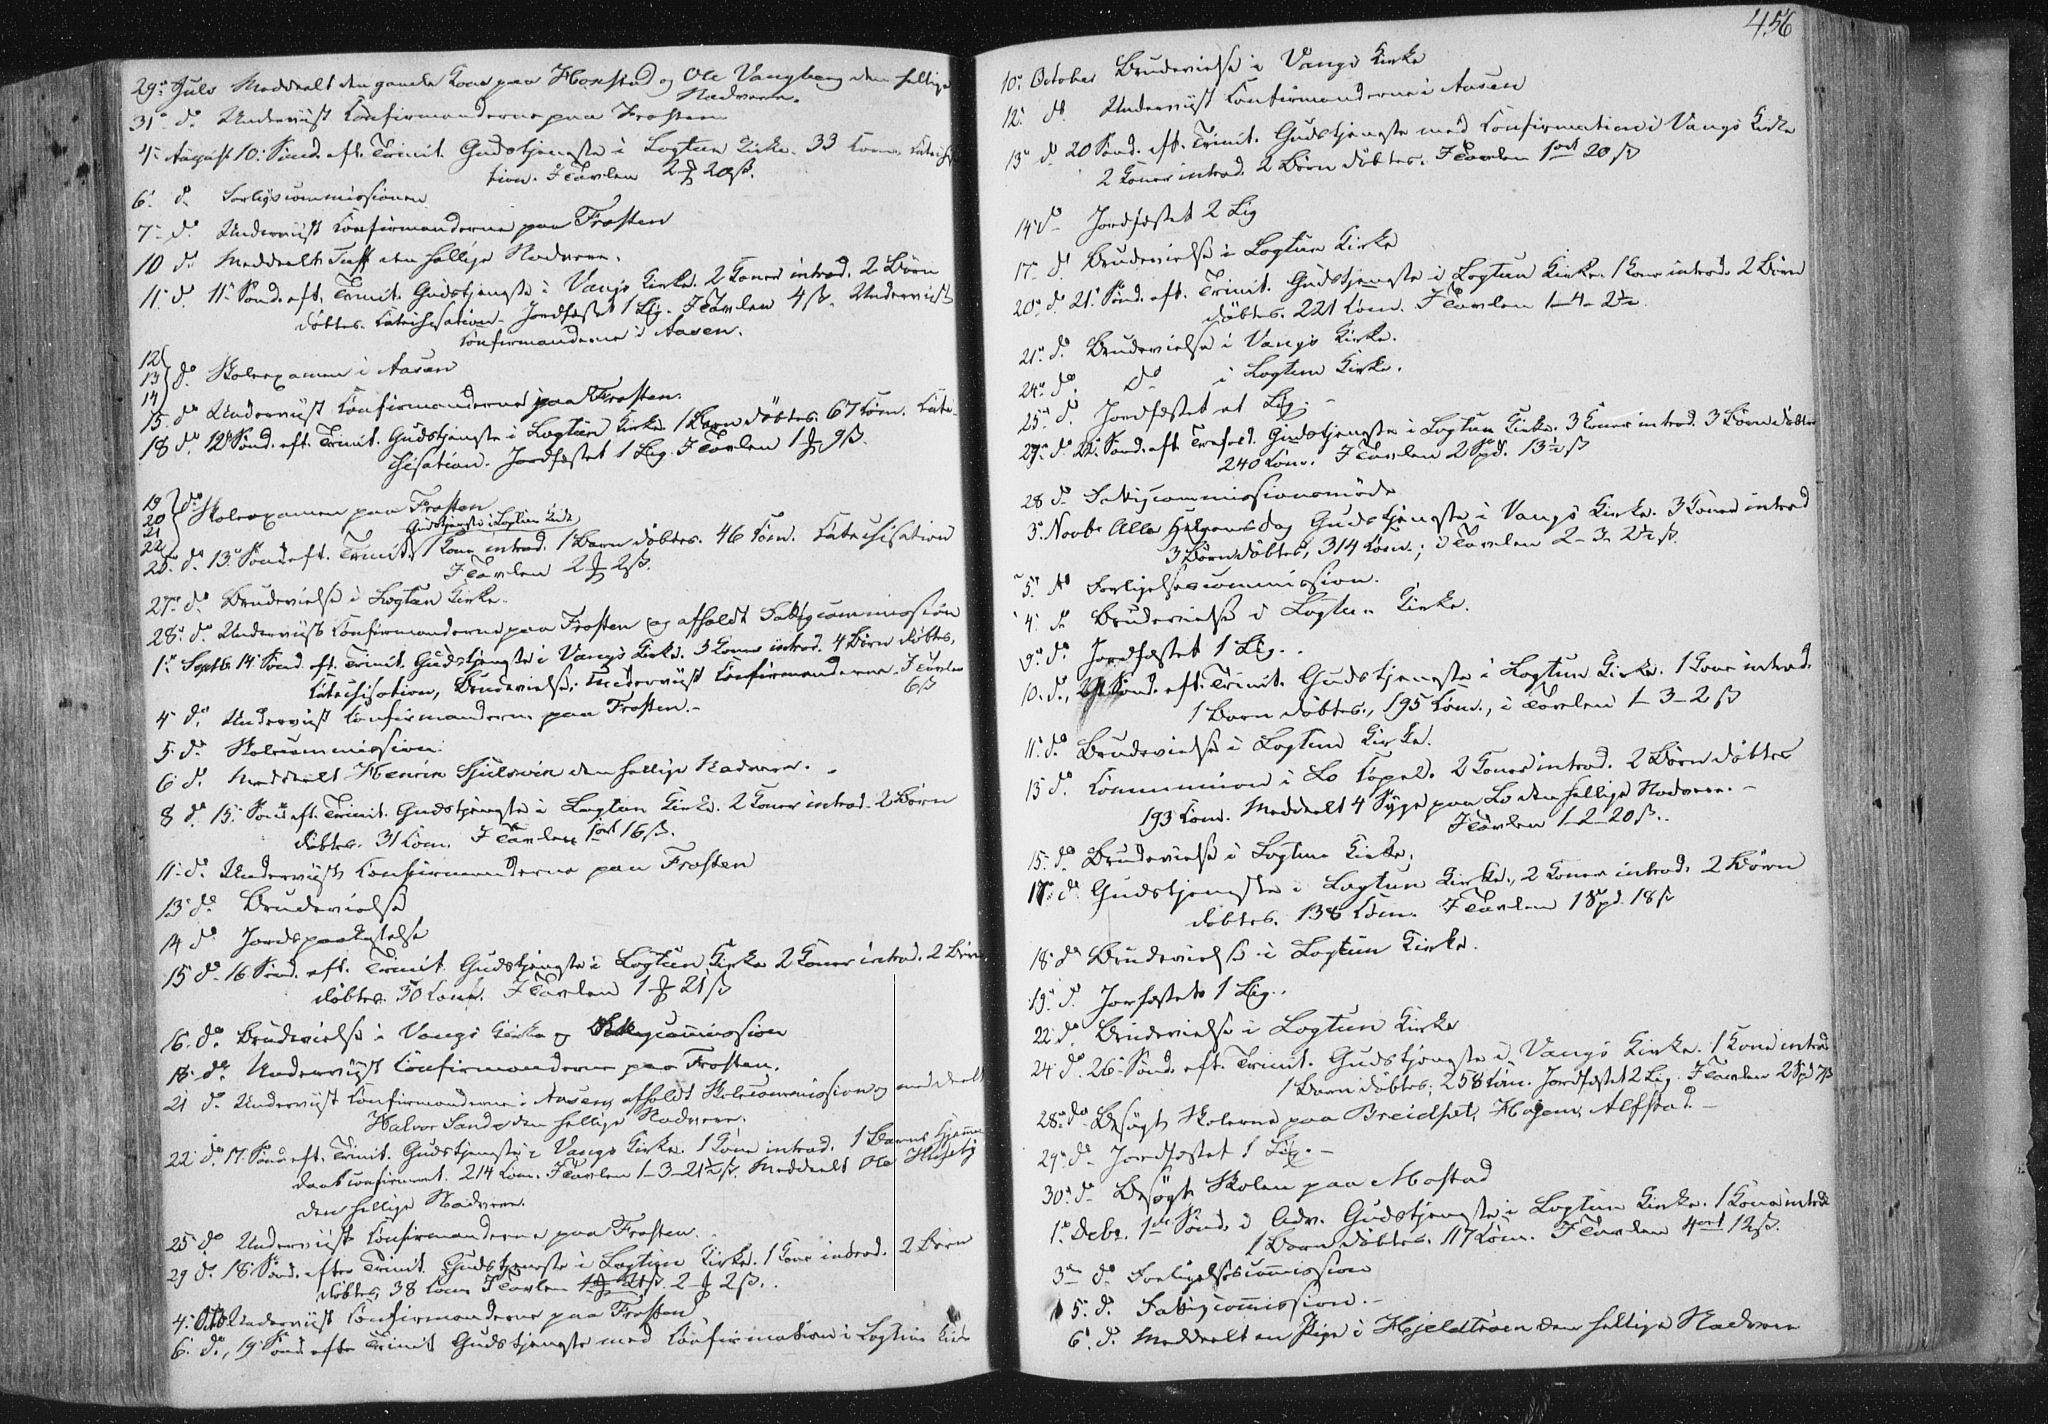 29. Juli Meddeelt den gamle Kone paa Hoxstad og Ole Vangberg den hellige
Nadvere.
31. do Underviist Confirmanderne paa Frosten
4. August 10. Sønd. eft. Trinit. Gudstjeneste i Logtun Kirke. 33 Com. Catechisa
tion. I Tavlen 2 20 ß.
6. d. Forligscommissionen
7. d. Underviist Confirmanderne paa Frosten
10 d. Meddeelt den hellige Nadvere.
11. d. 11. Sønd. eft. Trinit. Gudstjeneste i Vangs Kirke. 2 Koner introd. 2 Børn
døbtes. Catechisation. Jordfæstet 1 Lig. I Tavlen 4 ß. Underviist
Confirmanderne i Aasen.
12
13 do Skoleexamen i Aasen
14
15. do Underviist Confirmanderne paa Frosten.
18 do 12 Sønd. eft. Trinit. Gudstjeneste i Logtun Kirke. 1 Barn døbtes. 67 Com. Cate-
chisation. Jordfæstet 1 Lig. I Tavlen 1 9 ß.
19
20 do Skoleexamen paa Frosten
21
22
Gudstjeneste i Logtun Kirke
25. do 13. Sønd. eft. Trinit. 1 Kone introd. 1 Barn døbtes. 46 Com. Catechisation
I Tavlen 2 2 ß.
27. do Brudevielse i Logtun Kirke.
28. do Underviist Confirmanderne paa Frosten og afholdt Fattigcommission
1. Septb. 14 Sønd. eft. Trinit. Gudstjeneste i Vangs Kirke. 3 Koner introd. 4 Børn døbtes.
Catechisation, Brudevielse. Underviist Confirmanderne. I Tavlen
6 ß
4 do Underviist Confirmanderne paa Frosten.
5. do Skolecommission.
6 d. Meddeelt Henrik den hellige Nadvere.
8 d. 15. Sønd. eft. Trinit. Gudstjeneste i Logtun Kirke. 2 Koner introd. 2 Børn
døbtes. 31 Com. I Tavlen 1 ort 16 ß.
11. do Underviist Confirmanderne paa Frosten
13 do Brudevielse
14 do Jordspaakastelse
15 do 16 Sønd. eft. Trinit. Gudstjeneste i Logtun Kirke 2 Koner introd. 2 Børn
døbtes. 30 Com. I Tavlen 1 21 ß
16. do Brudevielse i Vangs Kirke og Fattigcommission
18. do Underviist Confirmanderne paa Frosten.
21 d. Underviist Confirmanderne i Aasen, afholdt Skolecommission og meddeelt
Halvor Sande den hellige Nadvere.
22 do 17. Sønd. eft. Trinit. Gudstjeneste i Vangs Kirke. 1 Kone introd. 1 Barns Hjemme
daab confirmeret. 214 Com. I Tavlen 1-3-21½ ß. Meddeelt Ole Huseby
den hellige Nadvere.
25 do Underviist Confirmanderne paa Frosten.
29 do 18. Sønd. efter Trinit. Gudstjeneste i Logtun Kirke. 1 Kone introd. 2 Børn
døbtes, 38 Com. I Tavlen 2 2 ß.
4. Octb. Underviist Confirmanderne paa Frosten
6. do, 19 Sønd. efter Trinit. Gudstjeneste med Confirmation i Logtun Kirke
456
10. October Brudevielse i Vangs Kirke
12. do Underviist Confirmanderne i Aasen
13. d. 20 Sønd. eft. Trinit. Gudstjeneste med Confirmation i Vangs Kirke
2 Koner introd. 2 Børn døbtes. I Tavlen 1 ort 20 ß
14. do Jordfæstet 2 Lig
17. d. Brudevielse i Logtun Kirke
20. d. 21. Sønd. eft. Trinit. Gudstjeneste i Logtun Kirke. 1 Kone introd. 2 Børn
døbtes. 221 Com. I Tavlen 1-4-2½.
21. do Brudevielse i Vangs Kirke.
24. do do i Logtun Kirke.
25. d. Jordfæstet et Lig.
27. do 22. Sønd. eft. Trefold. Gudstjeneste i Logtun Kirke. 3 Koner introd. 3 Børn døbtes
240 Com. I Tavlen 2 Spd. 13½ ß
28 do Fattigcommissionsmøde
3. Novbr Alle Helgens dag Gudstjeneste i Vangs Kirke. 3 Koner introd
3 Børn døbtes, 314 Com.; i Tavlen 2-3-2½ ß.
5. do Forligelsescommission.
4. do Brudevielse i Logtun Kirke.
9. do Jordfæstet 1 Lig.
10. d., 24 Sønd. eft. Trinit. Gudstjeneste i Logtun Kirke. 1 Kone introd.
1 Barn døbtes., 195 Com., i Tavlen 1-3-2 ß
11. do Brudevielse i Logtun Kirke.
13 do Communion i Lo Capel. 2 Koner introd. 2 Børn døbtes
193 Com. Meddeelt 4 Syge paa Lo den hellige Nadvere.
I Tavlen 1-2-20 ß.
15. do Brudevielse i Logtun Kirke.
17. do Gudstjeneste i Logtun Kirke., 2 Koner introd. 2 Børn
døbtes. 138 Com. I Tavlen 1 Spd. 18 ß
18. do Brudevielse i Logtun Kirke.
19. d. Jorfæstet 1 Lig.
22. do Brudevielse i Logtun Kirke
24. do 26. Sønd. eft. Trinit. Gudstjeneste i Vangs Kirke. 1 Kone introd
1 Barn døbtes; 258 Com. Jordfæstet 2 Lig. I Tavlen 2 Spd 7 ß
28. do Besøgt Skolerne paa Breidset, Hojem, Alfstad.
29. do Jordfæstet 1 Lig.
30. do Besøgt Skolen paa Mostad
1. Debr. 1ste Sønd. i Adv. Gudstjeneste i Logtun Kirke. 1 Kone introd
1 Barn døbtes. 117 Com. I Tavlen 4 ort 12 ß.
3. do Forligelsescommission
5. d. Fattigcommission.
6. d. Meddeelt en Pige i Hjeldtrøen den hellige Nadvere